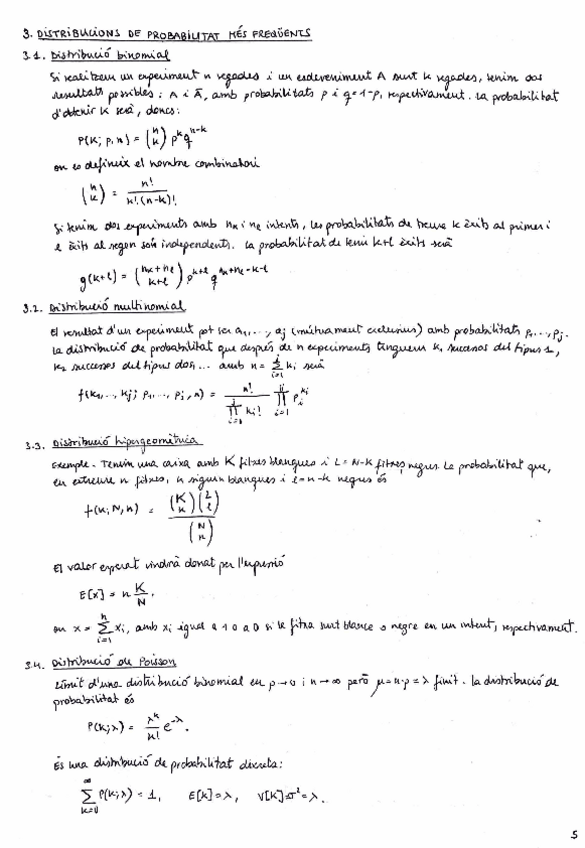 3. DISTRIBUCIONS DE PROBABILITAT MÉS FREQÜENTS
3.1. Distribució binomial
Si realitzem un experiment n vegades i un esdeveniment A surt k vegades, tenim dos
resultats possibles: A i Ā, amb probabilitats p i q=1-p, respectivament. La probabilitat
d'obtenir k serà, doncs:
P(k; p, n) = (n k) p^k q^{n-k}
on es defineix el nombre combinatori
(n k) = n! / k!(n-k)!
Si tenim dos experiments amb n_k i n_l intents, les probabilitats de treure k èxits al primer i
l èxits al segon són independents. La probabilitat de tenir k+l èxits serà
g(k+l) = (n_k+n_l k+l) p^{k+l} q^{n_k+n_l-k-l}
3.2. Distribució multinomial
El resultat d'un experiment pot ser a_1, ..., a_j (mútuament exclusius) amb probabilitats p_1, ..., p_j.
La distribució de probabilitat que després de n experiments tinguem k_1 successos del tipus 1,
k_2 successos del tipus dos, ... amb n = Σ_{i=1}^{j} k_i serà
f(k_1, ..., k_j; p_1, ..., p_j, n) = n! / ∏_{i=1}^{j} k_i! ∏_{i=1}^{j} p_i^{k_i}
3.3. Distribució hipergeomètrica
Exemple. Tenim una caixa amb K fitxes blanques i L = N-K fitxes negres. La probabilitat que,
en extreure n fitxes, k siguin blanques i l=n-k negres és
f(k; N, n) = (K k)(L l) / (N n)
El valor esperat vindrà donat per l'expressió
E[x] = n K/N.
on x = Σ_{i=1}^{n} x_i, amb x_i igual a 1 o a 0 si la fitxa surt blanca o negra en un intent, respectivament.
3.4. Distribució de Poisson
Límit d'una distribució binomial en p→0 i n→∞ però μ=n·p=λ finit. La distribució de
probabilitat és
P(k;λ) = λ^k / k! e^{-λ}.
És una distribució de probabilitat discreta:
Σ_{k=0}^{∞} P(k;λ) = 1, E[k]=λ, V[k]=σ²=λ.
5